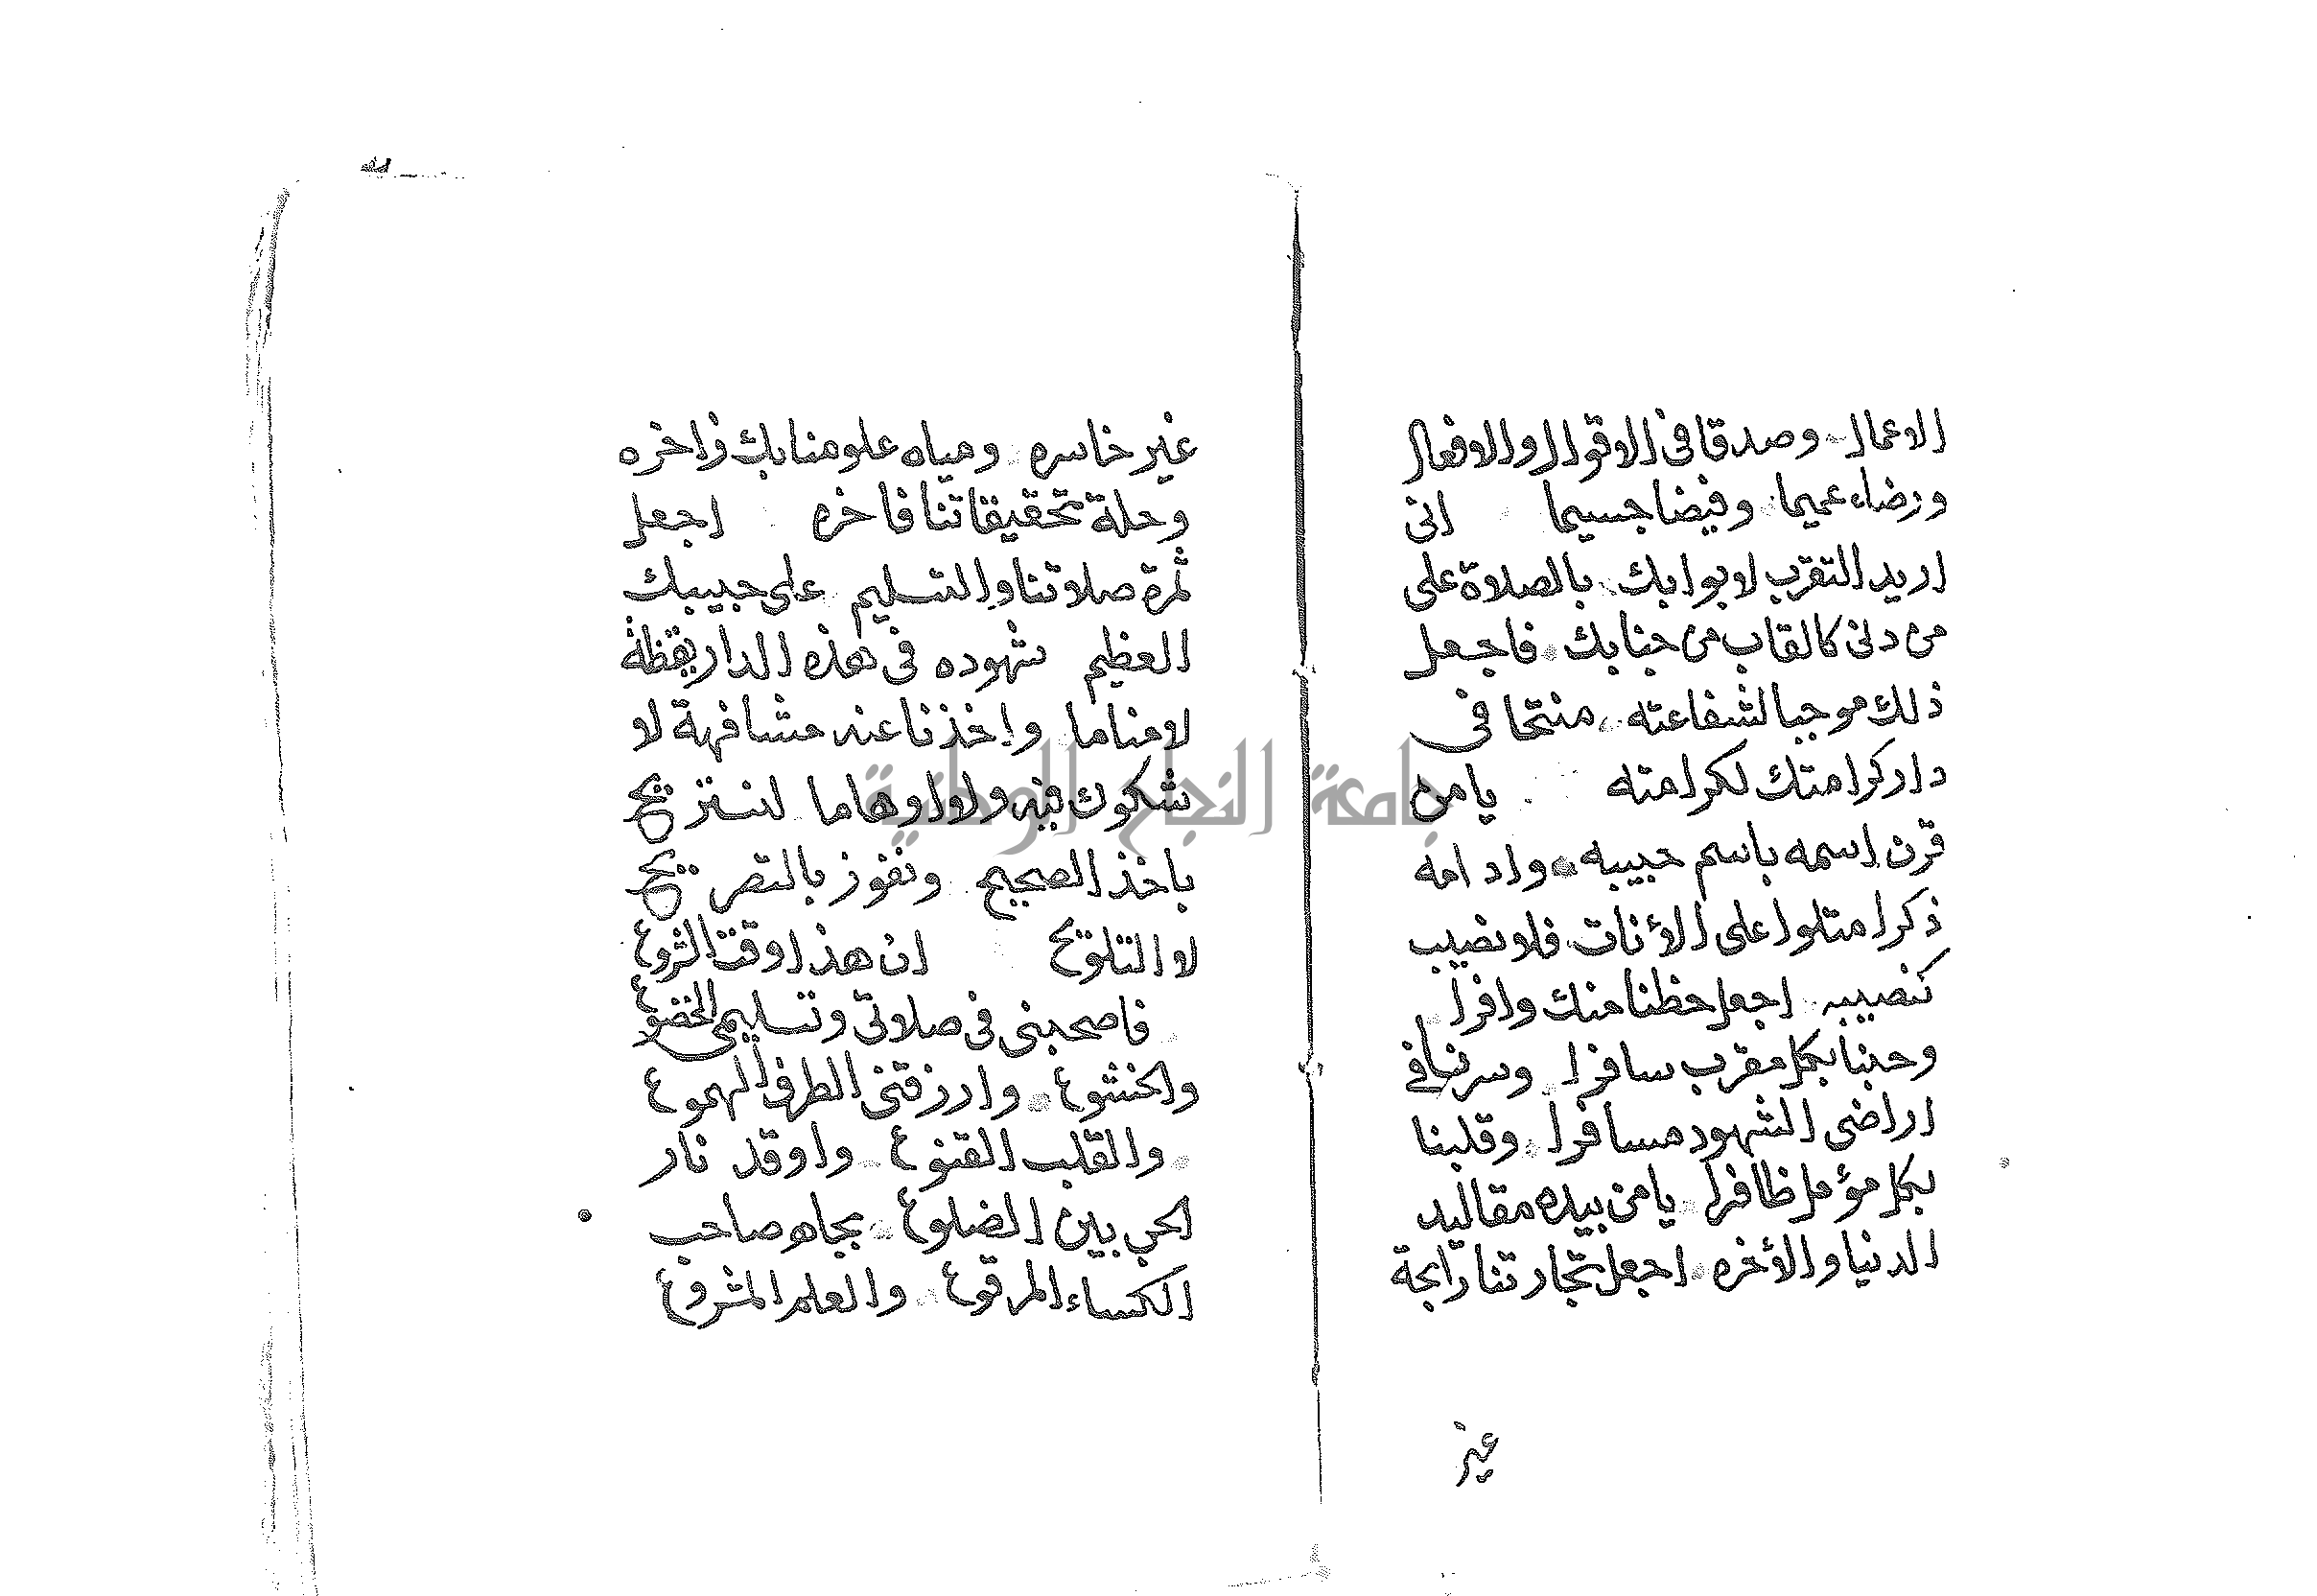 الاعمال وصدقا في الاقوال والافعال
ورضاء عميما وفيضا جسيما اني
اريد التقرب لابوابك بالصلاة على
من دنى كالقاب من جنابك فاجعل
ذلك موجبا لشفاعته منتجا في
دار كرامتك لكرامته يا من
قرن اسمه باسم حبيبه وادامه
ذكرا متلوا على الأنات فلا نصيب
كنصيبه اجعل حظنا منك وافرا
وحبنا بكل مقرب سافرا وسرنا في
اراضي الشهود مسافرا وقلبنا
بكل مؤمل ظافرا يا من بيده مقاليد
الدنيا والأخره اجعل تجارتنا رابحة
غير
غير خاسره ومياه علومنا بك زاخره
وحلة تحقيقاتنا فاخره اجعل
ثمرة صلاتنا والتسليم على حبيبك
العظيم شهوده في هذه الدار يقظة
لا مناما واخذنا عنه مشافهة لا
شكوك فيه ولا اوهاما لنستريح
باخذ الصحيح ونفوز بالتصريح
لا التلويح ان هذا وقت الشروع
فاصحبني في صلاتي وتسليمي الخضوع
والخشوع وارزقني الطرف الهموع
والقلب القنوع واوقد نار
الحب بين الضلوع بجاه صاحب
الكساء المرقوع والعلم المشروع
جامعة النجاح الوطنية